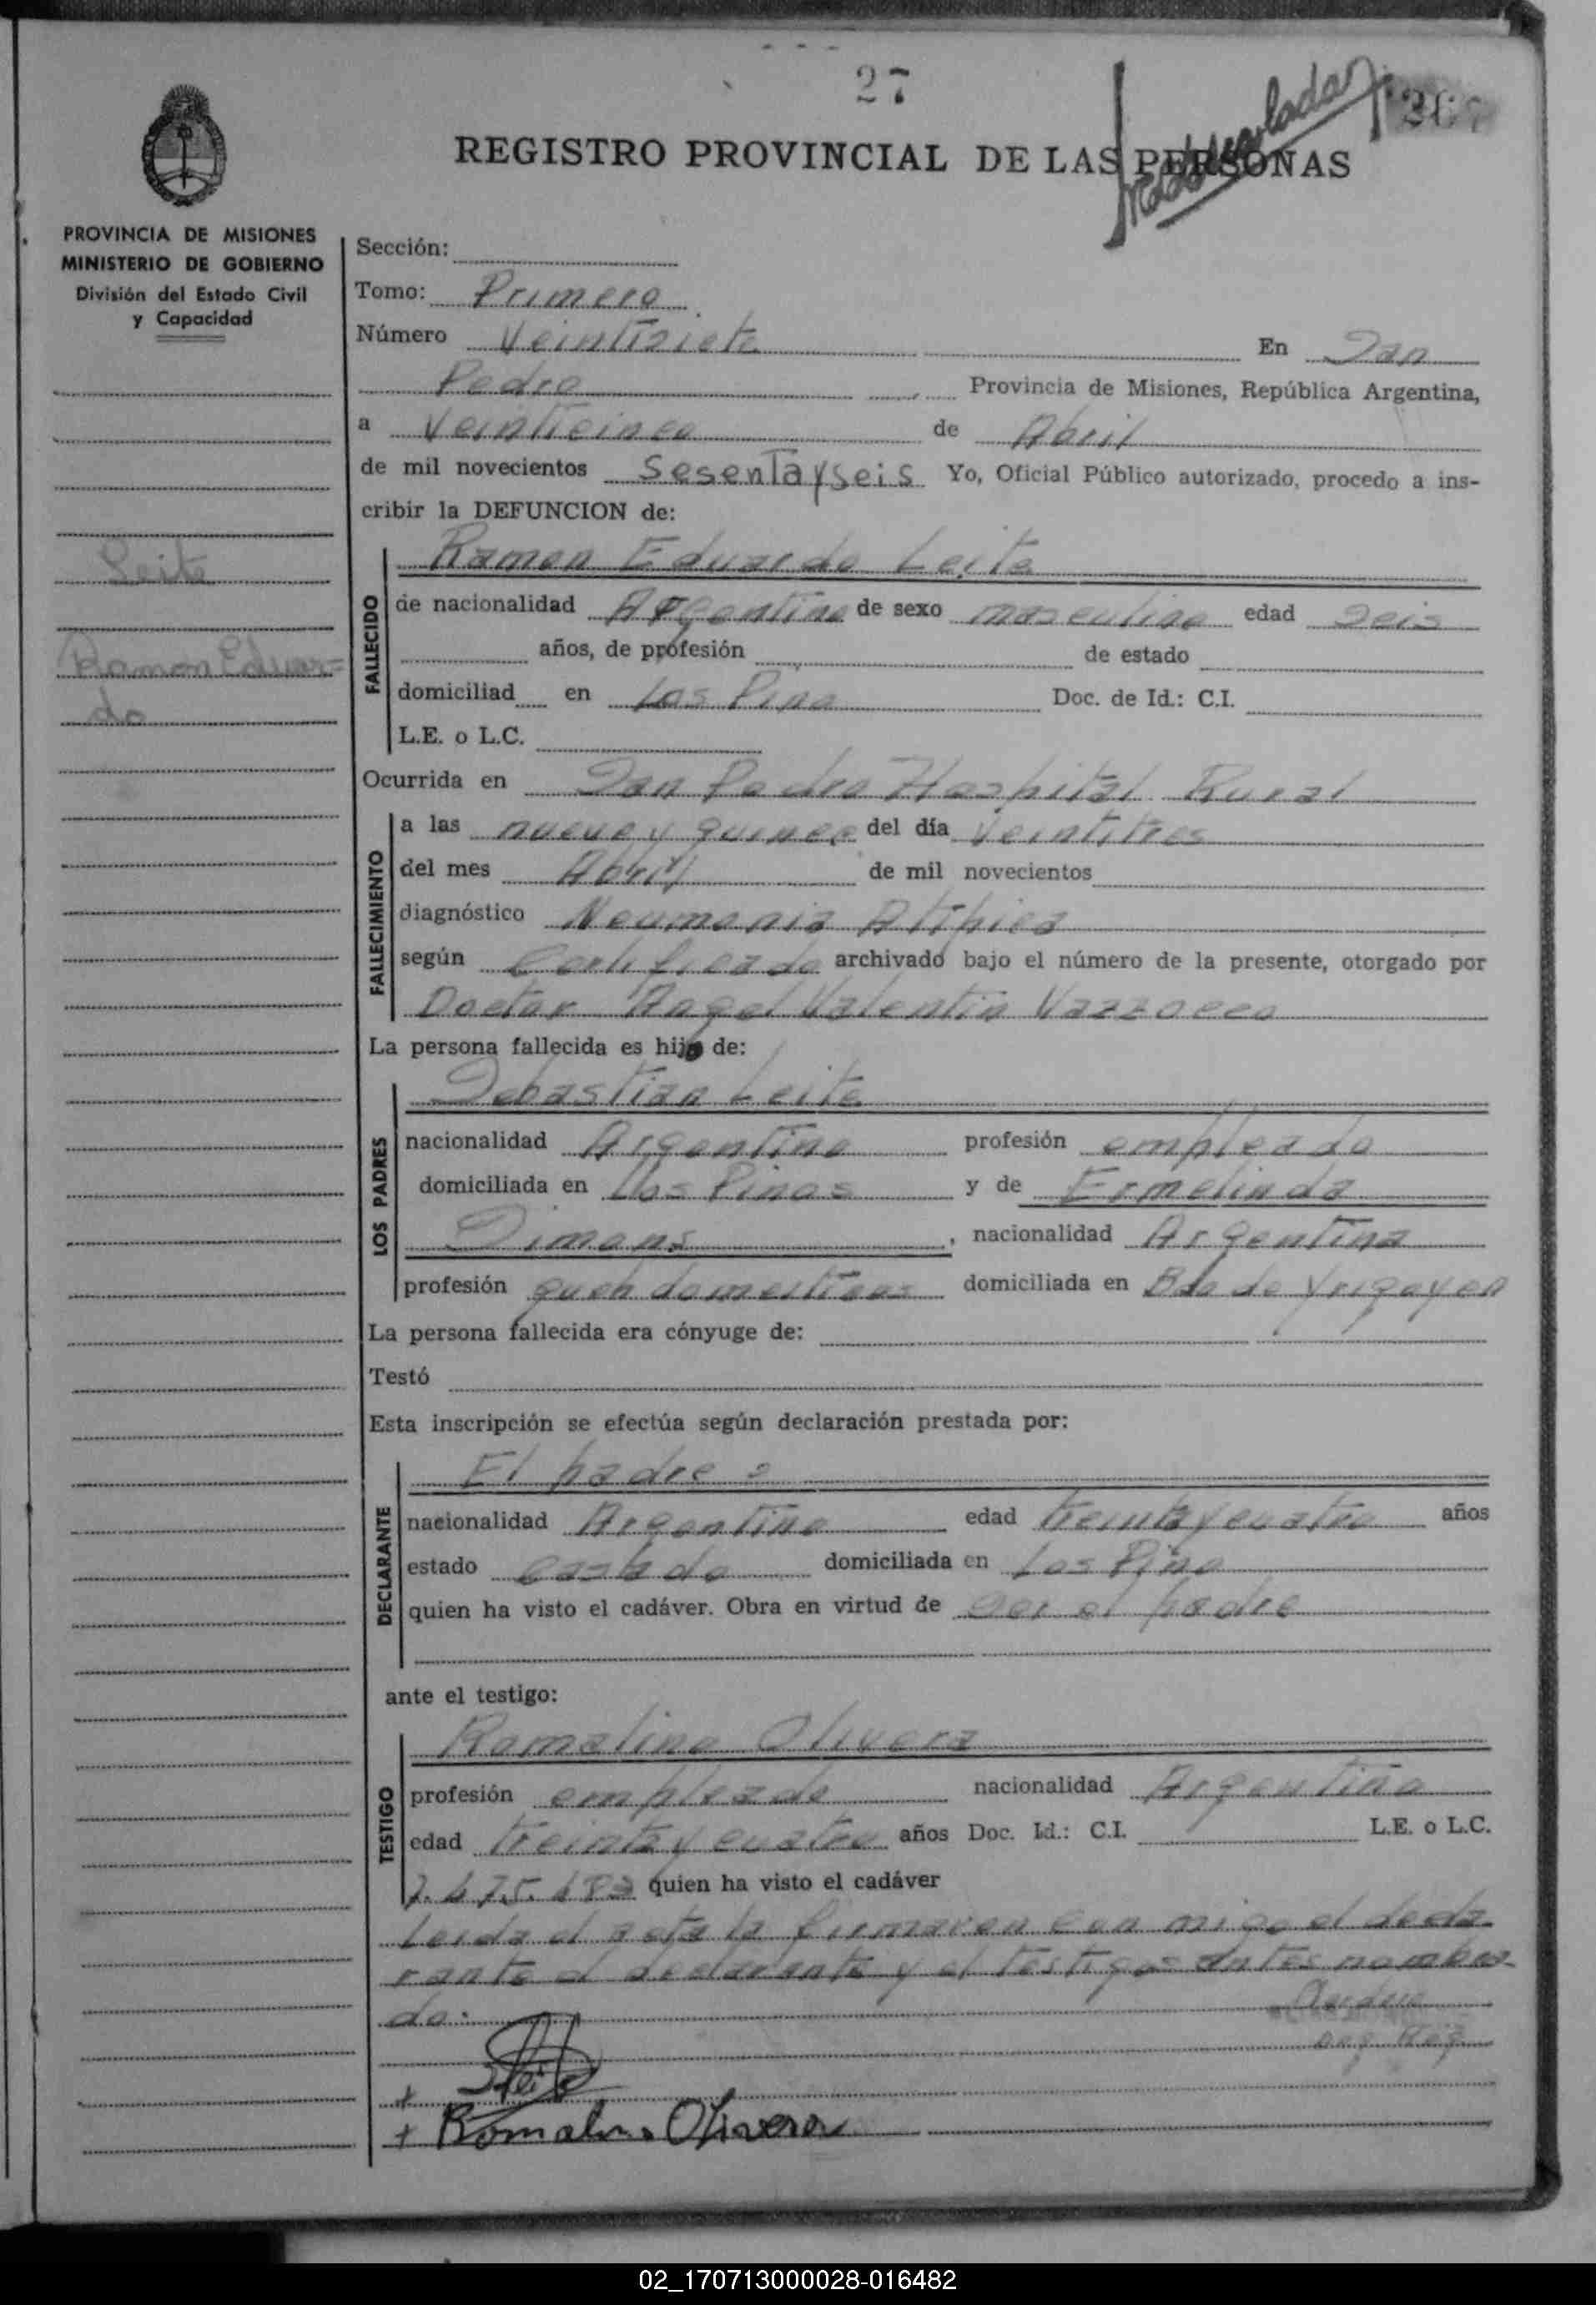 27
REGISTRO PROVINCIAL DE LAS PERSONAS
PROVINCIA DE MISIONES
MINISTERIO DE GOBIERNO
División del Estado Civil
y Capacidad
Leite
Ramon Eduar=
do
Sección:
Tomo: Primero
Número Veintisiete En San
Pedro Provincia de Misiones, República Argentina,
a Veinticinco de Abril
de mil novecientos Sesentayseis Yo, Oficial Público autorizado, procedo a ins-
cribir la DEFUNCION de:
FALLECIDO
Ramon Eduardo Leite
de nacionalidad Argentino de sexo masculino edad Seis
años, de profesión de estado
domiciliad en Los Pino Doc. de Id.: C.I.
L.E. o L.C.
Ocurrida en San Pedro Hospital Rural
FALLECIMIENTO
a las nueve y quince del día Veintitres
del mes Abril de mil novecientos
diagnóstico Neumonia Atipica
según Certificado archivado bajo el número de la presente, otorgado por
Doctor Angel Valentin
La persona fallecida es hijo de:
LOS PADRES
Sebastian Leite
nacionalidad Argentino profesión empleado
domiciliada en Los Pinos y de Ermelinda
Simons, nacionalidad Argentina
profesión domiciliada en Bdo de Yrigoyen
La persona fallecida era cónyuge de:
Testó
Esta inscripción se efectúa según declaración prestada por:
DECLARANTE
El padre
nacionalidad Argentino edad treintaycuatro años
estado casado domiciliada en Los Pino
quien ha visto el cadáver. Obra en virtud de ser el padre
ante el testigo:
TESTIGO
Romalino Olivera
profesión empleado nacionalidad Argentino
edad treintaycuatro años Doc. Id.: C.I. L.E. o L.C.
quien ha visto el cadáver
Leida el acta la firmaron con migo el decla
rante el declarante y el testigo antes nombra
do.
+ Leite
+ Romalino Olivera
02_170713000028-016482